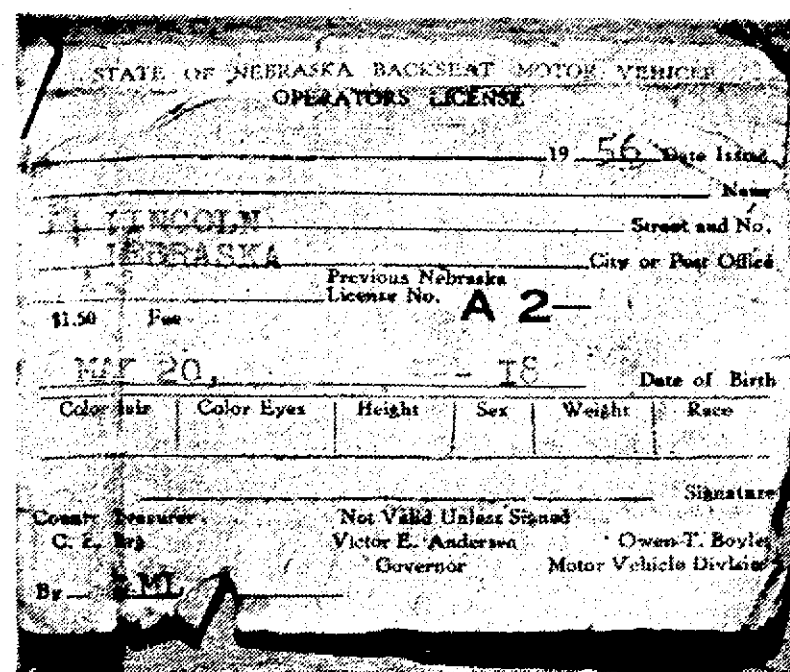 STATE OF NEBRASKA BACKSEAT MOTOR VEHICLE
OPERATORS LICENSE
19 56 Date Issued
Name
LINCOLN
Street and No.
NEBRASKA
City or Post Office
Previous Nebraska
License No. A 2-
$1.50 Fee
20, Date of Birth
Color Hair Color Eyes Height Sex Weight Race
Signature
County Treasurer Not Valid Unless Signed
C. E. Victor E. Anderson Owen T. Boyles
Governor Motor Vehicle Division
By ML